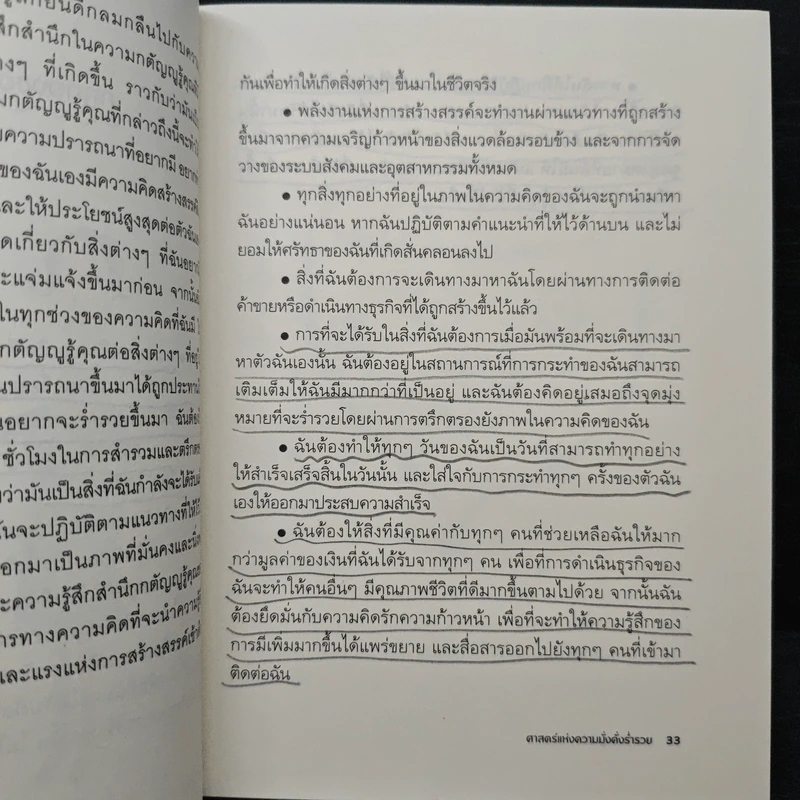 ู้สึกยินดีกลมกลืนไปกับความ
สึกสำนึกในความกตัญญูรู้คุณ
งๆ ที่เกิดขึ้น ราวกับว่ามัน
มกตัญญูรู้คุณที่กล่าวถึงนี้จะทำ
ความปรารถนาที่อยากมี
ของฉันเองมีความคิดสร้างสรรค์
ละให้ประโยชน์สูงสุดต่อตัวฉัน
ดเกี่ยวกับสิ่งต่างๆ ที่ฉันอยาก
ะแจ่มแจ้งขึ้นมาก่อน จากนั้น
ในทุกช่วงของความคิดที่ฉันมี
กตัญญูรู้คุณต่อสิ่งต่างๆ ที่
นปรารถนาขึ้นมาได้ถูกประทาน
นอยากจะร่ำรวยขึ้นมา ฉันต้อง
ชั่วโมงในการสำรวมและตรึกตรอง
ว่ามันเป็นสิ่งที่ฉันกำลังจะได้รับ
ันจะปฏิบัติตามแนวทางที่ให้
อกมาเป็นภาพที่มั่นคงและ
ะความรู้สึกสำนึกกตัญญูรู้คุณ
ารทางความคิดที่จะนำความ
และแรงแห่งการสร้างสรรค์เข้า
กันเพื่อทำให้เกิดสิ่งต่างๆ ขึ้นมาในชีวิตจริง
• พลังงานแห่งการสร้างสรรค์จะทำงานผ่านแนวทางที่ถูกสร้าง
ขึ้นมาจากความเจริญก้าวหน้าของสิ่งแวดล้อมรอบข้าง และจากการจัด
วางของระบบสังคมและอุตสาหกรรมทั้งหมด
• ทุกสิ่งทุกอย่างที่อยู่ในภาพในความคิดของฉันจะถูกนำมาหา
ฉันอย่างแน่นอน หากฉันปฏิบัติตามคำแนะนำที่ให้ไว้ด้านบน และไม่
ยอมให้ศรัทธาของฉันที่เกิดสั่นคลอนลงไป
• สิ่งที่ฉันต้องการจะเดินทางมาหาฉันโดยผ่านทางการติดต่อ
ค้าขายหรือดำเนินทางธุรกิจที่ได้ถูกสร้างขึ้นไว้แล้ว
• การที่จะได้รับในสิ่งที่ฉันต้องการเมื่อมันพร้อมที่จะเดินทางมา
หาตัวฉันเองนั้น ฉันต้องอยู่ในสถานการณ์ที่การกระทำของฉันสามารถ
เติมเต็มให้ฉันมีมากกว่าที่เป็นอยู่ และฉันต้องคิดอยู่เสมอถึงจุดมุ่ง
หมายที่จะร่ำรวยโดยผ่านการตรึกตรองยังภาพในความคิดของฉัน
• ฉันต้องทำให้ทุกๆ วันของฉันเป็นวันที่สามารถทำทุกอย่าง
ให้สำเร็จเสร็จสิ้นในวันนั้น และใส่ใจกับการกระทำทุกๆ ครั้งของตัวฉัน
เองให้ออกมาประสบความสำเร็จ
• ฉันต้องให้สิ่งที่มีคุณค่ากับทุกๆ คนที่ช่วยเหลือฉันให้มาก
กว่ามูลค่าของเงินที่ฉันได้รับจากทุกๆ คน เพื่อที่การดำเนินธุรกิจของ
ฉันจะทำให้คนอื่นๆ มีคุณภาพชีวิตที่ดีมากขึ้นตามไปด้วย จากนั้นฉัน
ต้องยึดมั่นกับความคิดรักความก้าวหน้า เพื่อที่จะทำให้ความรู้สึกของ
การมีเพิ่มมากขึ้นได้แพร่ขยาย และสื่อสารออกไปยังทุกๆ คนที่เข้ามา
ติดต่อฉัน
ศาสตร์แห่งความมั่งคั่งร่ำรวย 33